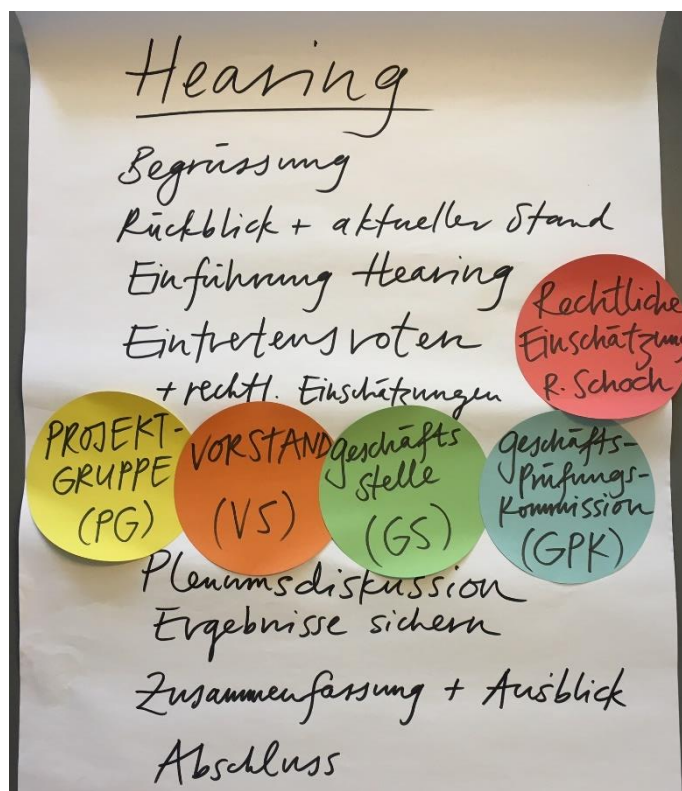 Hearing
Begrüssung
Rückblick + aktueller Stand
Einführung Hearing
Eintretensvoten
+ rechtl. Einschätzungen
Rechtliche
Einschätzung
R. Schoch
PROJEKT-
GRUPPE
(PG)
VORSTAND
(VS)
geschäfts
stelle
(GS)
geschäfts-
Prüfungs-
Kommission
(GPK)
Plenumsdiskussion
Ergebnisse sichern
Zusammenfassung + Ausblick
Abschluss